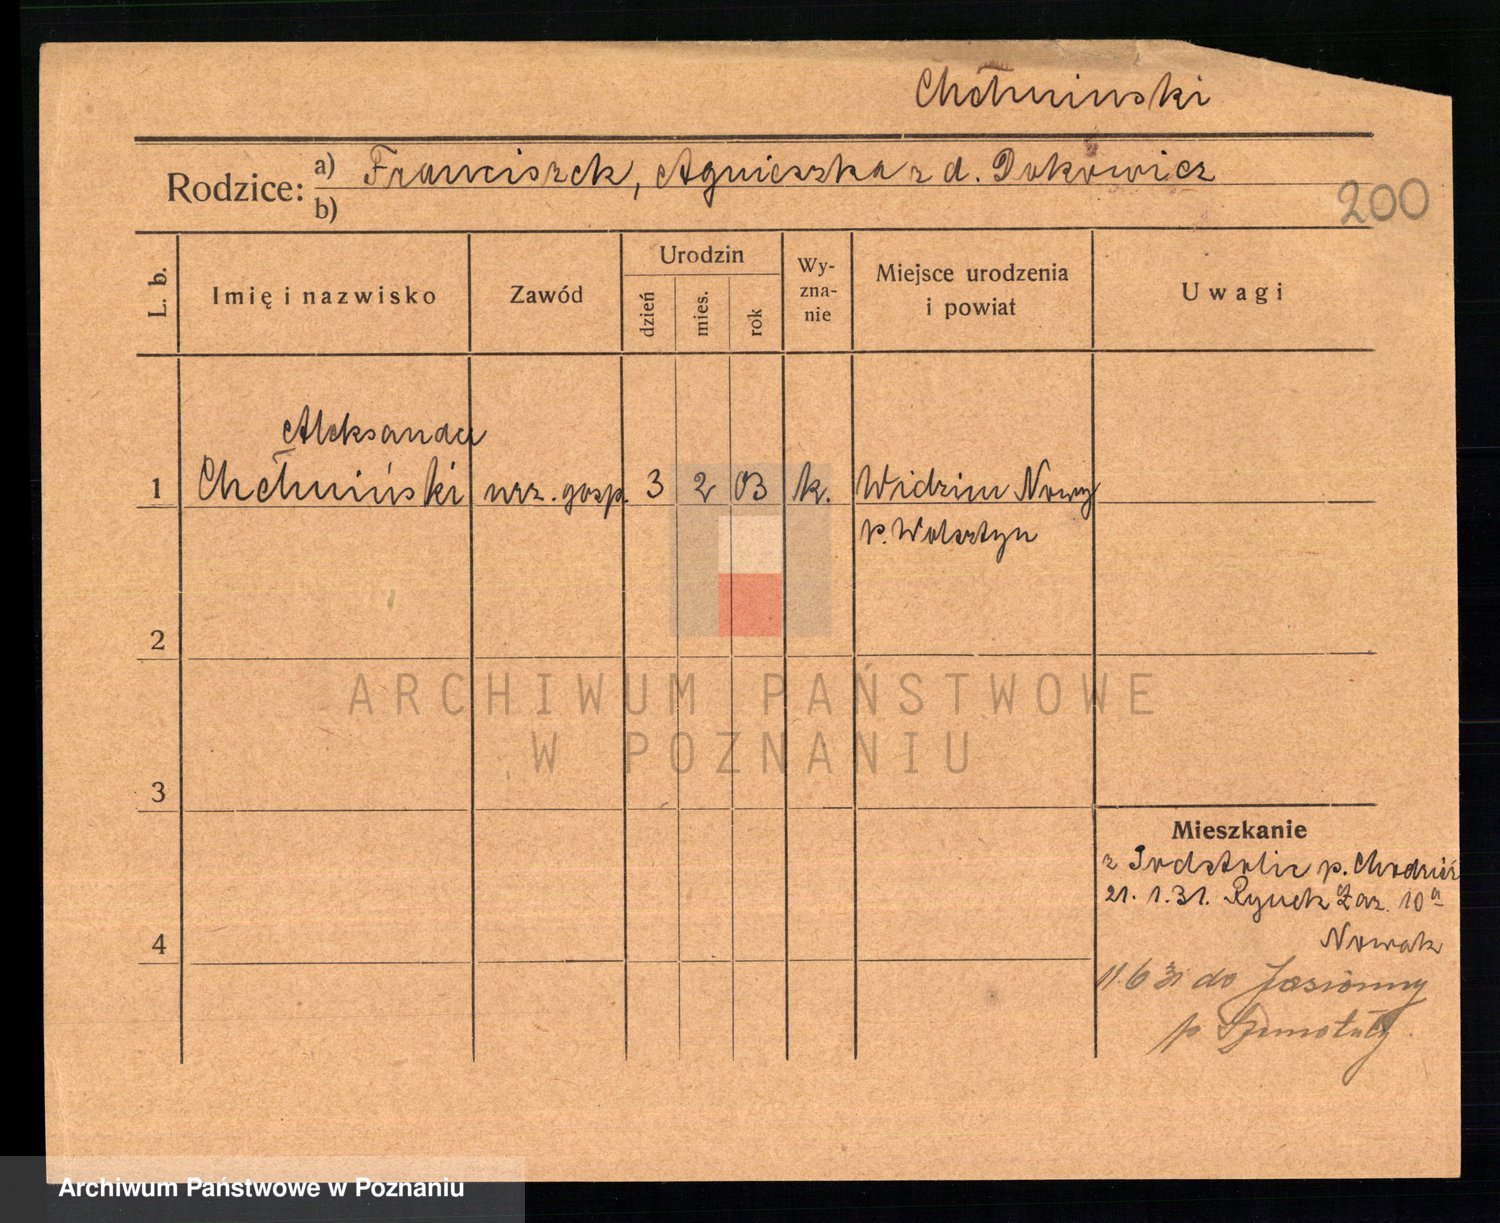 Chełminski
Rodzice: a) Franciszek, Agnieszka z d. Dokowicz
b)
200
L. b.
Imię i nazwisko
Zawód
Urodzin
dzień
mies.
rok
Wy-
zna-
nie
Miejsce urodzenia
i powiat
Uwagi
Aleksander
1 Chełmiński urz. gosp. 3 2 03 k. Widzim Nowy
p. Wolsztyn
2
3
4
ARCHIWUM PAŃSTWOWE
W POZNANIU
Mieszkanie
z Podstolic p. Chodzież
21. 1. 31. Rynek Łaz. 10a
Nowak
11 6 31 do Jasionny
p Szmotuły
Archiwum Państwowe w Poznaniu